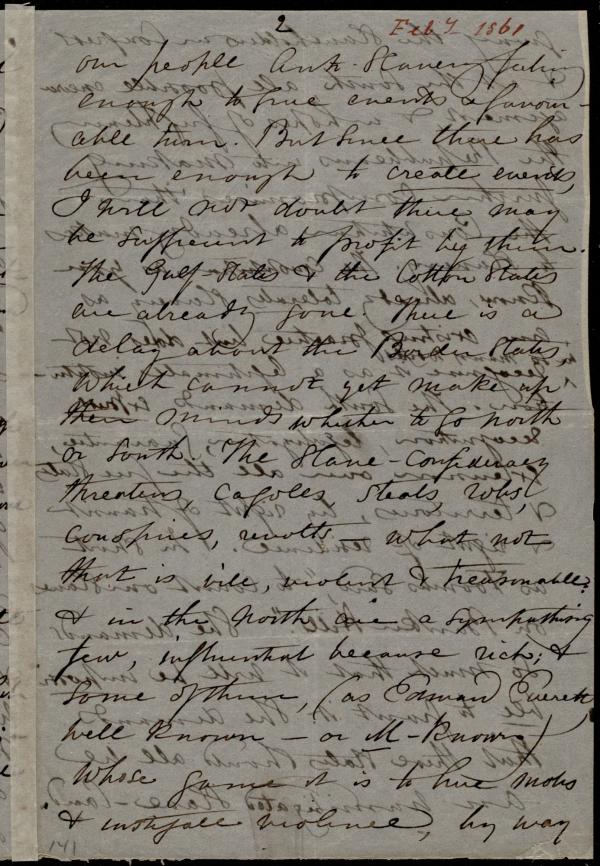 2
Feb 7 1861
our people Anti-Slavery feeling
enough to give events a favour-
able turn. But since there has
been enough to create events,
I will not doubt there may
be sufficient to profit by them.
The Gulf-States & the Cotton States
are already gone. There is a
delay about the Border States
which cannot yet make up
their minds whether to go north
or South. The Slave-Confederacy
threatens, cajoles, steals, robs,
conspires, revolts — what not
that is vile, violent & treasonable?
& in the North are a sympathising
few, influential because rich; &
some of them, (as Edward Everett,
well known — or ill-known)
whose game it is to hire mobs
& violence, by way
141